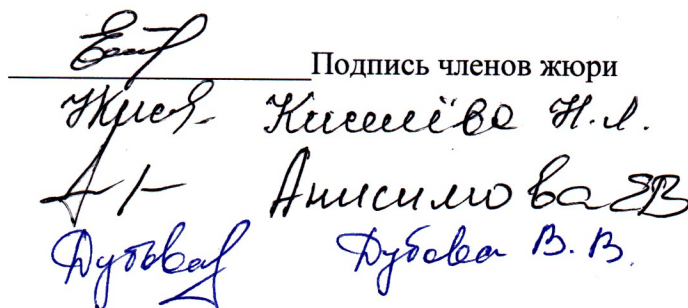 Подпись членов жюри
Киселёва Н.Л.
Анисимова ЕВ
Дубова В. В.